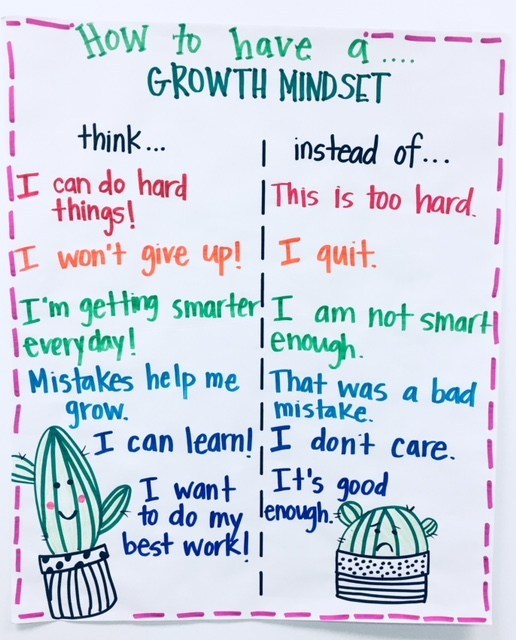 How to have a....
GROWTH MINDSET
think...
I can do hard
things!
I won't give up!
I'm getting smarter
everyday!
Mistakes help me
grow.
I can learn!
I want
to do my
best work!
instead of...
This is too hard.
I quit.
I am not smart
enough.
That was a bad
mistake.
I don't care.
It's good
enough.